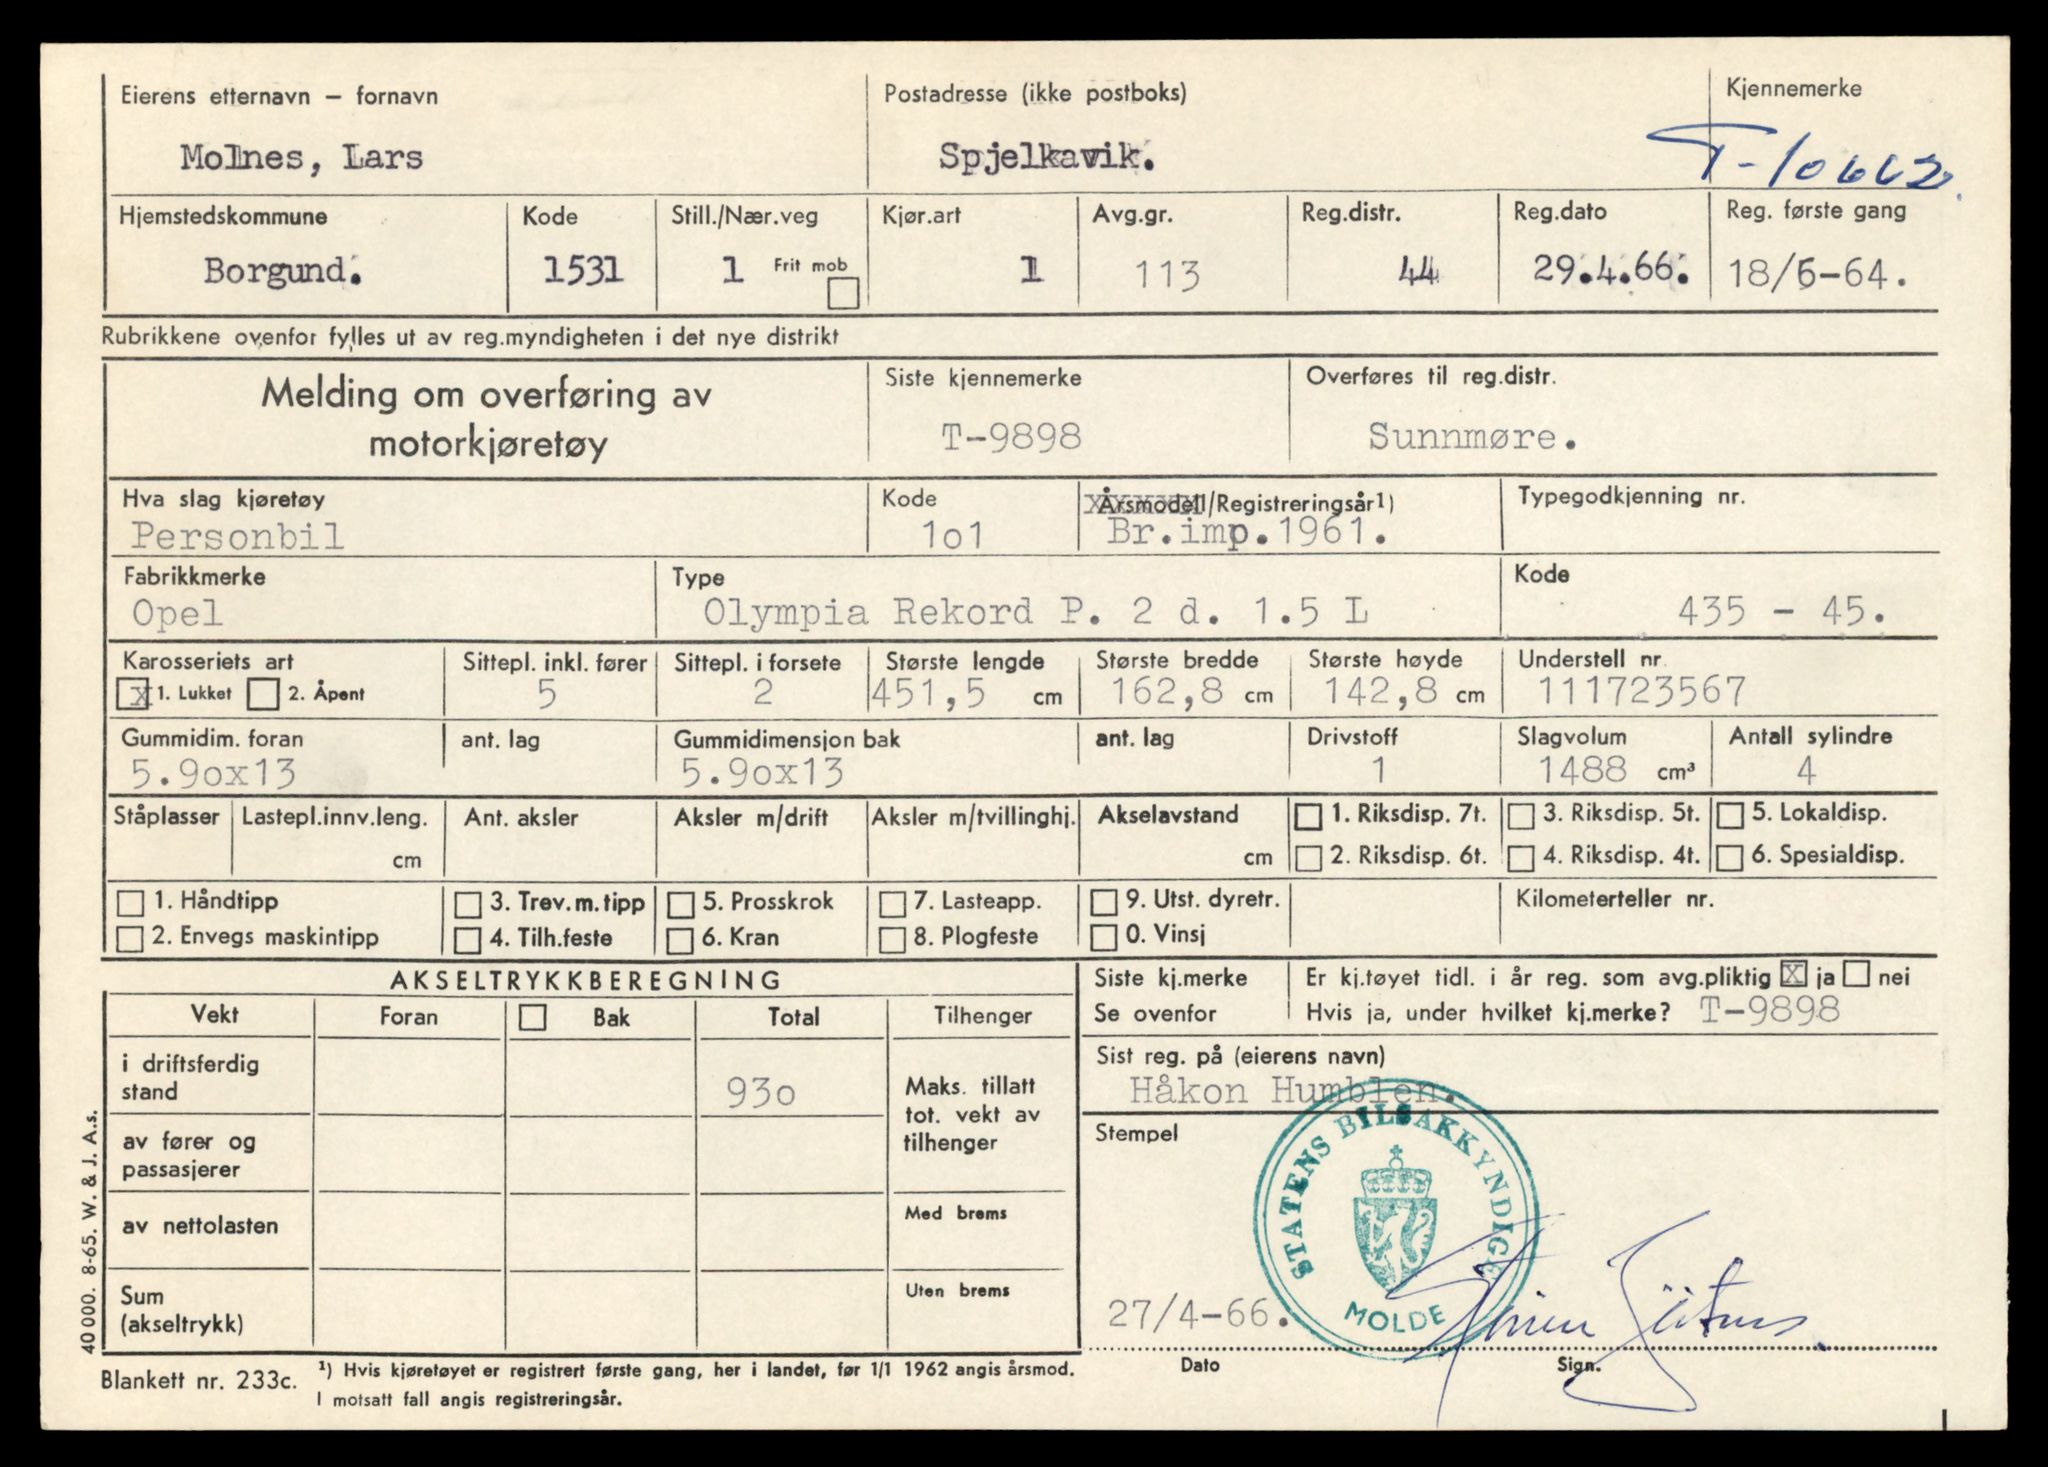 Eierens etternavn – fornavn
Molnes, Lars
Postadresse (ikke postboks)
Spjelkavik.
Kjennemerke
T-10662.
Hjemstedskommune
Borgund.
Kode
1531
Still./Nær.veg
1 Frit mob
Kjør.art
1
Avg.gr.
113
Reg.distr.
44
Reg.dato
29.4.66.
Reg. første gang
18/6-64.
Rubrikkene ovenfor fylles ut av reg.myndigheten i det nye distrikt
Melding om overføring av
motorkjøretøy
Siste kjennemerke
T-9898
Overføres til reg.distr.
Sunnmøre.
Hva slag kjøretøy
Personbil
Kode
1o1
Årsmodell/Registreringsår1)
Br.imp.1961.
Typegodkjenning nr.
Fabrikkmerke
Opel
Type
Olympia Rekord P. 2 d. 1.5 L
Kode
435 - 45.
Karosseriets art
x 1. Lukket 2. Åpent
Sittepl. inkl. fører
5
Sittepl. i forsete
2
Største lengde
451,5 cm
Største bredde
162,8 cm
Største høyde
142,8 cm
Understell nr.
111723567
Gummidim. foran
5.9ox13
ant. lag
Gummidimensjon bak
5.9ox13
ant. lag
Drivstoff
1
Slagvolum
1488 cm³
Antall sylindre
4
Ståplasser
Lastepl.innv.leng.
cm
Ant. aksler
Aksler m/drift
Aksler m/tvillinghj.
Akselavstand
cm
1. Riksdisp. 7t.
2. Riksdisp. 6t.
3. Riksdisp. 5t.
4. Riksdisp. 4t.
5. Lokaldisp.
6. Spesialdisp.
1. Håndtipp
2. Envegs maskintipp
3. Trev.m.tipp
4. Tilh.feste
5. Prosskrok
6. Kran
7. Lasteapp.
8. Plogfeste
9. Utst. dyretr.
0. Vinsj
Kilometerteller nr.
AKSELTRYKKBEREGNING
Vekt
Foran
Bak
Total
Tilhenger
i driftsferdig
stand
93o
Maks. tillatt
tot. vekt av
tilhenger
av fører og
passasjerer
av nettolasten
Med brems
Sum
(akseltrykk)
Uten brems
Siste kj.merke
Se ovenfor
Er kj.tøyet tidl. i år reg. som avg.pliktig X ja nei
Hvis ja, under hvilket kj.merke? T-9898
Sist reg. på (eierens navn)
Håkon Humblen.
Stempel
STATENS BILSAKKYNDIGE
MOLDE
27/4-66.
Dato
Sign.
40 000. 8-65. W. & J. A.s.
Blankett nr. 233c.
1) Hvis kjøretøyet er registrert første gang, her i landet, før 1/1 1962 angis årsmod.
I motsatt fall angis registreringsår.